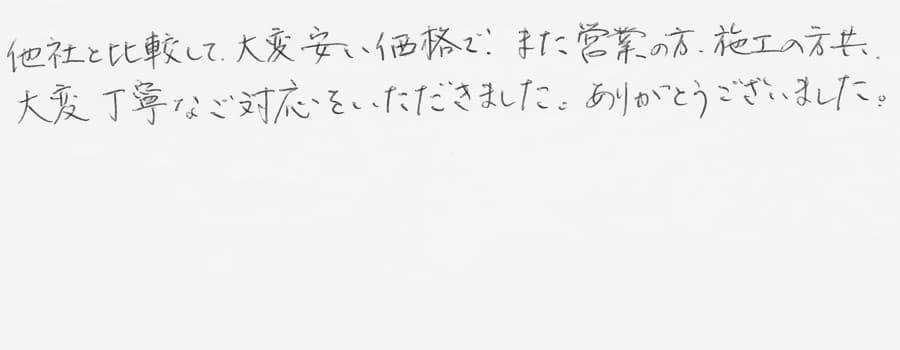 他社と比較して、大変安い価格で、また営業の方、施工の方共、
大変丁寧なご対応をいただきました。ありがとうございました。